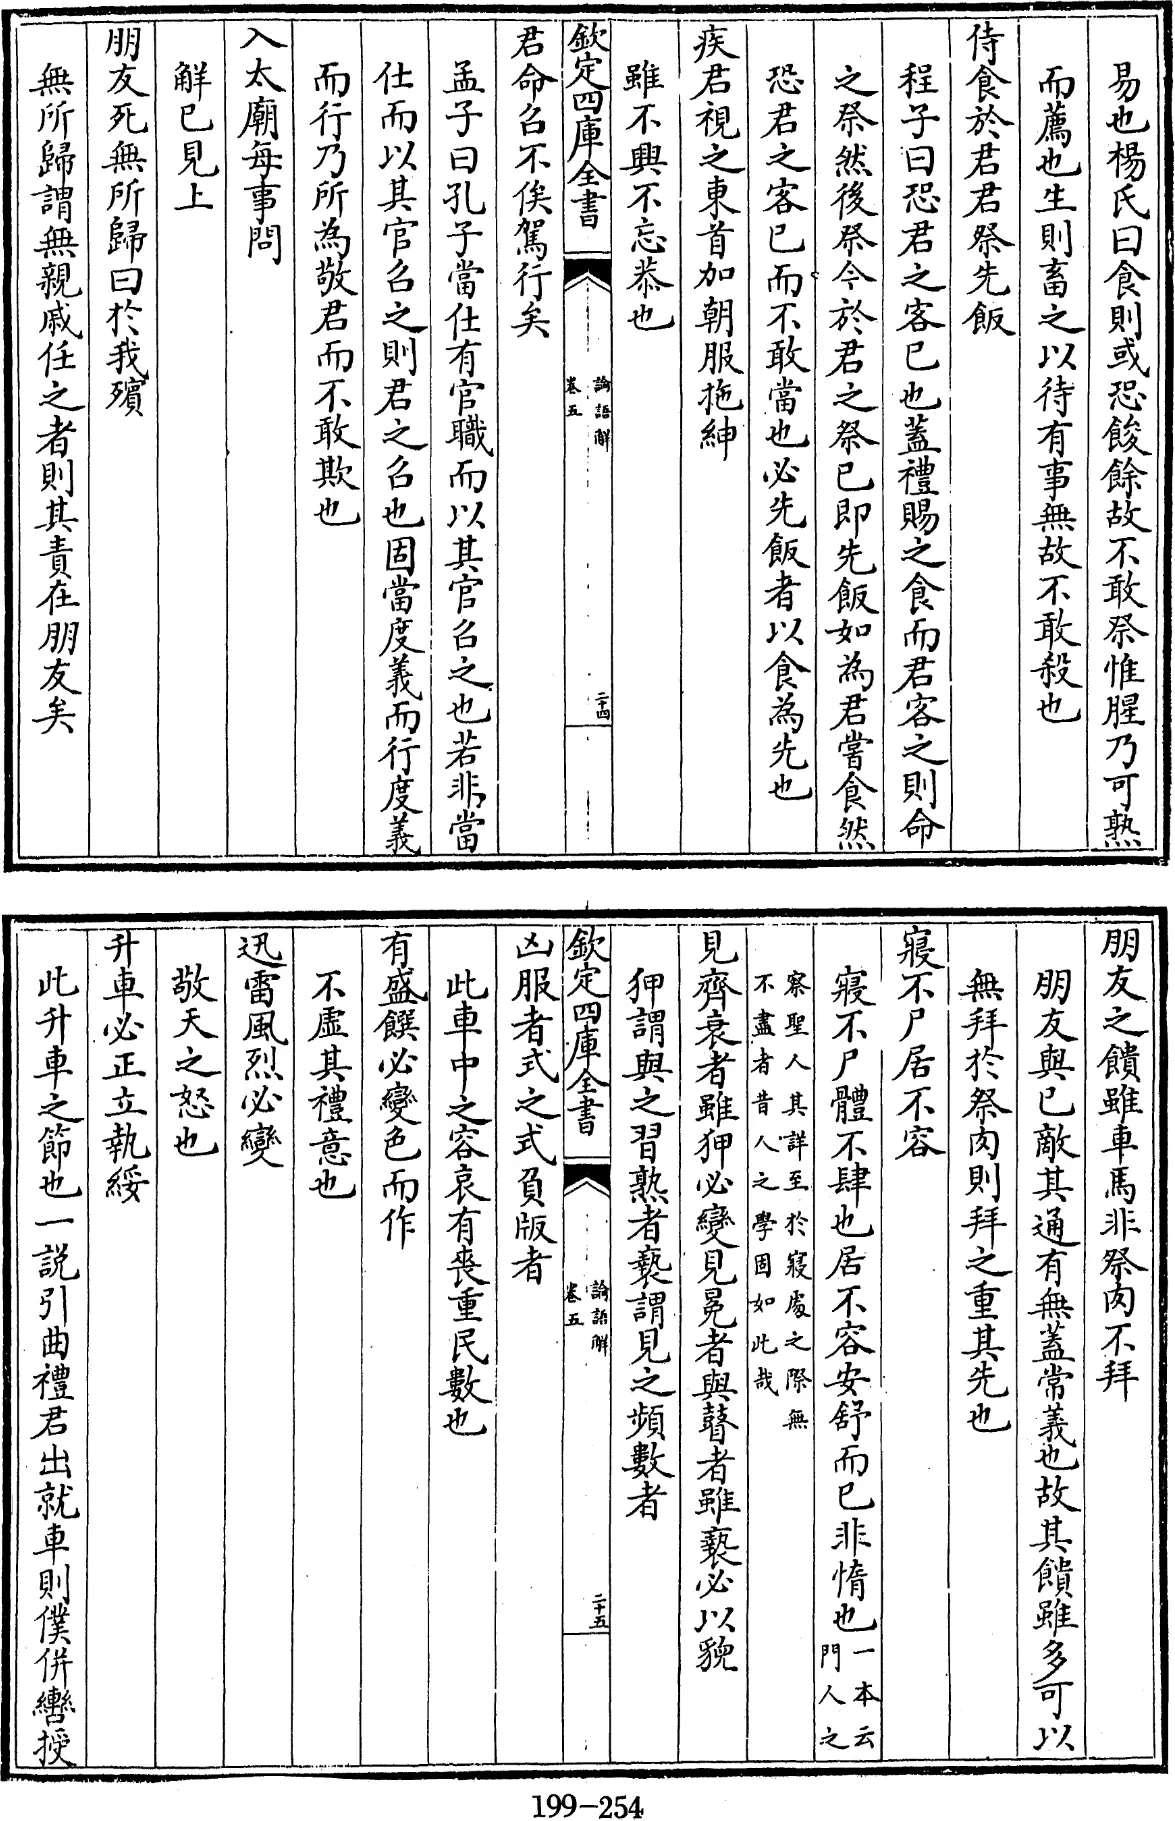 易也楊氏曰食則或恐餕餘故不敢祭惟腥乃可熟
而薦也生則畜之以待有事無故不敢殺也
侍食於君君祭先飯
程子曰恐君之客已也蓋禮賜之食而君客之則命
之祭然後祭今於君之祭已即先飯如為君嘗食然
恐君之客已而不敢當也必先飯者以食為先也
疾君視之東首加朝服拖紳
雖不興不忘恭也
欽定四庫全書
論語解
卷五
二十四
君命召不俟駕行矣
孟子曰孔子當仕有官職而以其官召之也若非當
仕而以其官召之則君之召也固當度義而行度義
而行乃所為敬君而不敢欺也
入太廟每事問
解已見上
朋友死無所歸曰於我殯
無所歸謂無親戚任之者則其責在朋友矣
朋友之饋雖車馬非祭肉不拜
朋友與已敵其通有無蓋常義也故其饋雖多可以
無拜於祭肉則拜之重其先也
寢不尸居不容
寢不尸體不肆也居不容安舒而已非惰也一本云
門人之
察聖人其詳至於寢處之際無
不盡者昔人之學固如此哉
見齊衰者雖狎必變見冕者與瞽者雖褻必以貌
狎謂與之習熟者褻謂見之頻數者
欽定四庫全書
論語解
卷五
二十五
凶服者式之式負版者
此車中之容哀有喪重民數也
有盛饌必變色而作
不虛其禮意也
迅雷風烈必變
敬天之怒也
升車必正立執綏
此升車之節也一說引曲禮君出就車則僕併轡授
199-254